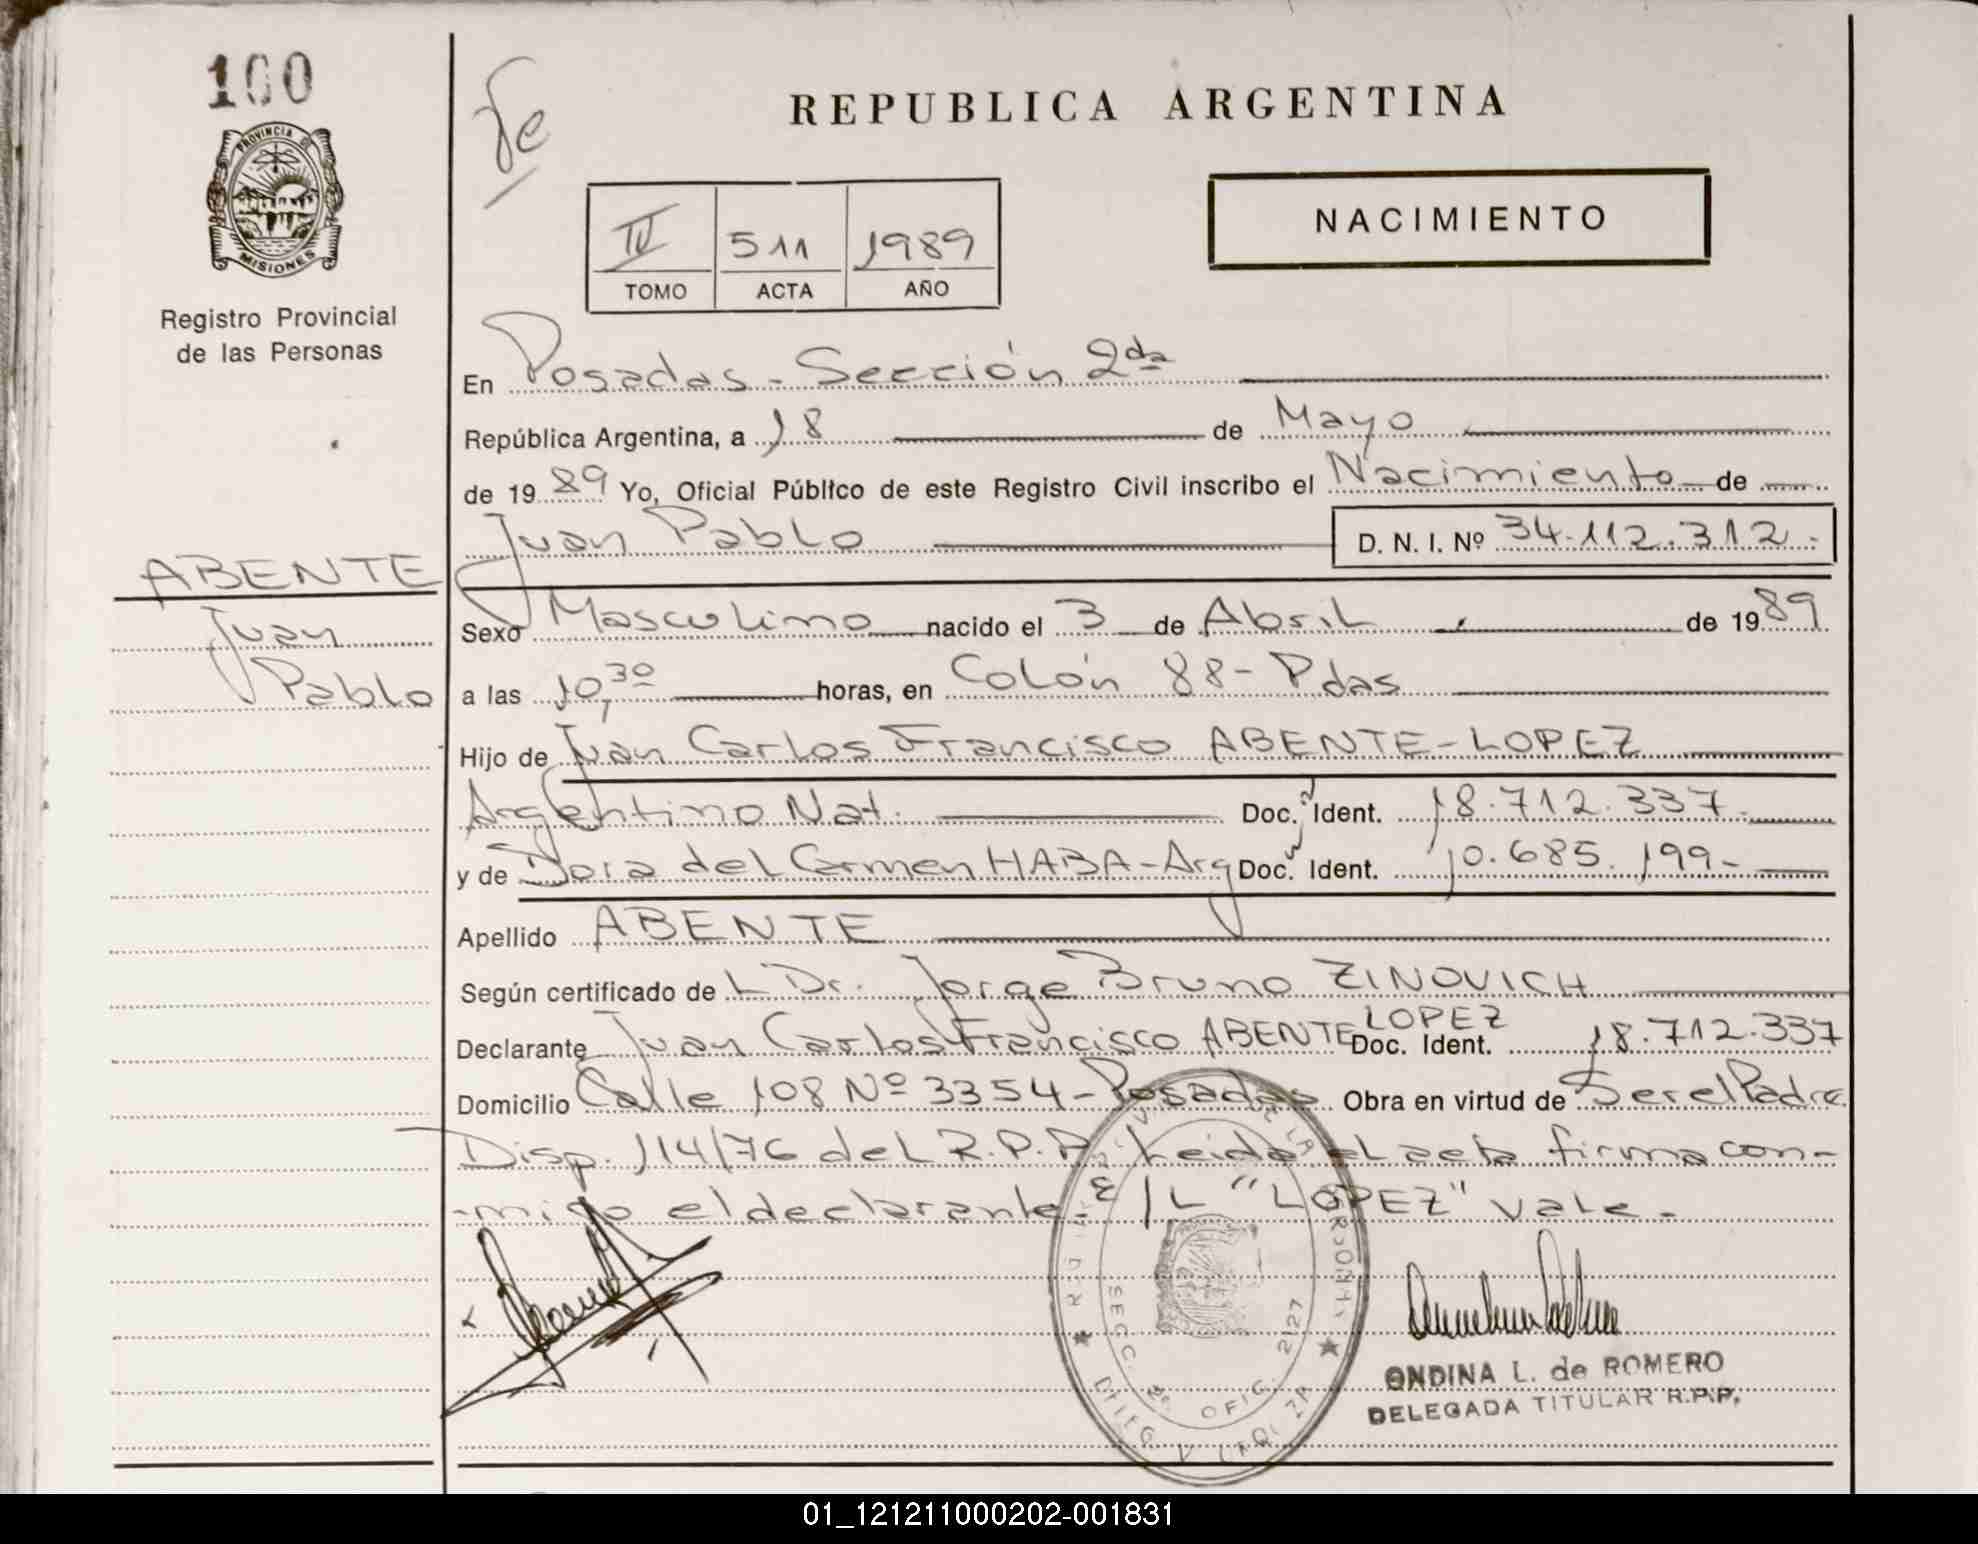 100
fe
REPUBLICA ARGENTINA
PROVINCIA DE
MISIONES
Registro Provincial
de las Personas
IV 511 1989
TOMO ACTA AÑO
NACIMIENTO
En Posadas - Sección 2da
República Argentina, a 18 de Mayo
de 1989 Yo, Oficial Público de este Registro Civil inscribo el Nacimiento de
Juan Pablo D. N. I. Nº 34.112.312.-
ABENTE
Juan
Pablo
Sexo Masculino nacido el 3 de Abril de 1989
a las 10,30 horas, en Colón 88 - Pdas
Hijo de Juan Carlos Francisco ABENTE-LOPEZ
Argentino Nat. Doc. Ident. 18.712.337.
y de Dora del Carmen HABA - Arg Doc. Ident. 10.685.199-
Apellido ABENTE
Según certificado de L Dr. Jorge Bruno ZINOVICH
Declarante Juan Carlos Francisco ABENTE LOPEZ Doc. Ident. 18.712.337
Domicilio Calle 108 Nº 3354 - Posadas Obra en virtud de Ser el Padre
Disp. 114/76 del R.P.P. Leida el acta firma con-
-migo el declarante. E/L "LOPEZ" vale.-
SECC. 2º OFIC. 2127
ONDINA L. de ROMERO
DELEGADA TITULAR R.P.P.
01_121211000202-001831